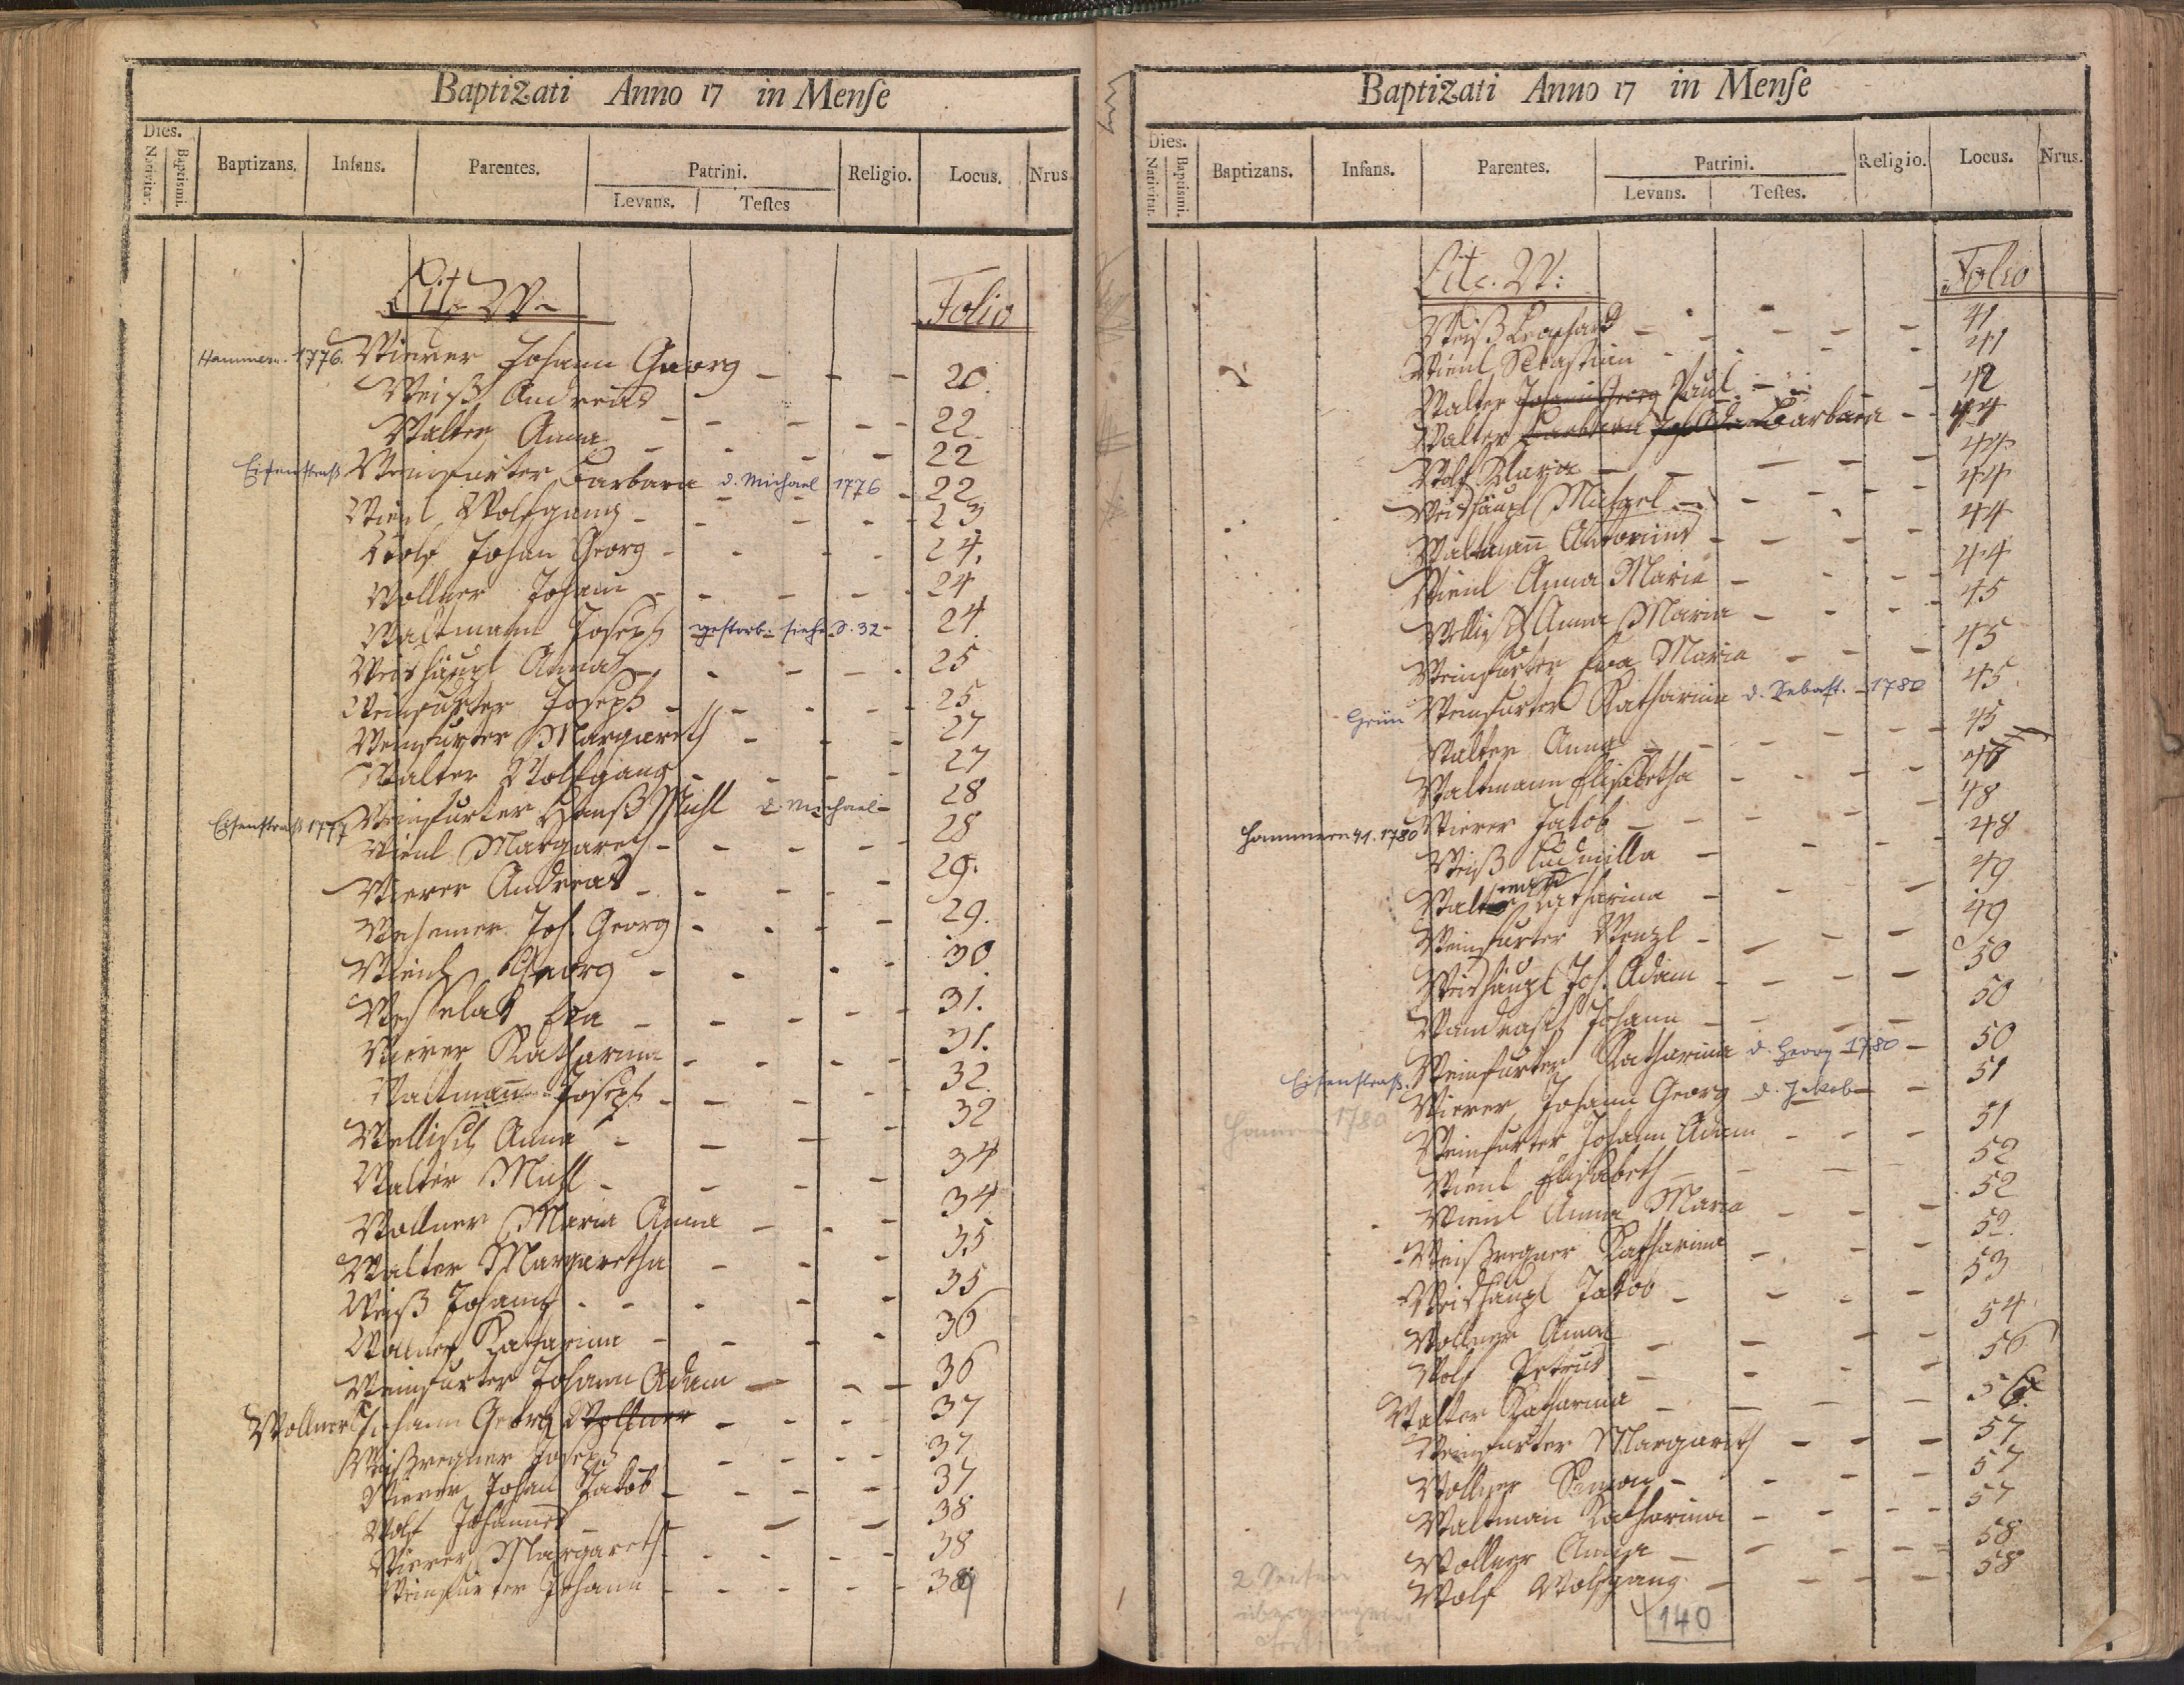 Baptizati Anno 17 in Menſe
Dies.
Nativitat. Baptismi. Baptizans. Infans. Parentes. Patrini. Religio. Locus. Nrus
Levans. Teſtes
Lit. W. Folio
Hammern. 1776. Wierer Johann Georg - - - 20.
Weiß Andreas - - - - 22
Walter Anna - - - - 22
Eisenstraß Weinfurter Barbara d. Michael 1776 - 22
Wienl Wolfgang - - - - 23
Wolf Johan Georg - - - - 24.
Wollner Johann - - - - 24
Waltmann Joseph gestorb. siehe S. 32 - 24
Weishäupl Anna - - - - 25
Weinfurter Joseph - - - - 25
Weinfurter Margareth - - - 27
Walter Wolfgang - - - - 27
Weinfurter Hanß Michl d. Michael - 28
Eisenstraß 1777 Wienl Margareth - - - - 28
Wierer Andreas - - - - 29.
Joh. Georg - - - - 29.
Georg - - - - 30
Eva - - - - 31.
Wierer Katharina - - - - 31.
Waltmann Joseph - - - - 32.
Anna - - - - 32
Walter Michl - - - - 34
Wollner Maria Anna - - - 34
Walter Margaretha - - - 35
Weiß Johann - - - - 35
Katharina - - - - 36
Weinfurter Johann Adam - - - 36
Wollner Johann Georg Wollner - - - - 37
Weißregner Joseph - - - - 37
Wierer Johan Jakob - - - - 37
Wolf Johannes - - - 38
Wierer Margareth - - - - 38
Weinfurter Johann - - - - 39
Baptizati Anno 17 in Menſe
Dies.
Nativitat. Baptismi. Baptizans. Infans. Parentes. Patrini. Religio. Locus. Nrus.
Levans. Teſtes.
Litt. W: Folio
Weiß Leonhard - - - - 41
Wienl Sebastian - - - - 41
Walter Johann Georg Paul - - - 42
Walter Barbara - 44
Wolf Maria - - - - 44
Weishäupl Michael - - - - 44
Waltmann Antonius - - - - 44
Wienl Anna Maria - - - - 44
Anna Maria - - - - 45
Weinfurter Eva Maria - - - 45
Grün Weinfurter Katharina d. Sebast. - 1780 45
Walter Anna - - - - 45
Waltmann Elisabetha - - - -
Hammern 41. 1780 Wierer Jakob - - - - 48
Weiß Ludmilla - - - - 48
Waltmann Katharina - - - - 49
Weinfurter Wenzl - - - - 49
Weishäupl Joh. Adam - - - - 50
Johann - - - - 50
Eisenstraß. Weinfurter Katharina d. Georg 1780 - 50
Hammern 1780 Wierer Johann Georg d. Jakob - - 51
Weinfurter Johann Adam - - - 51
Wienl Elisabeth - - - - 52
Wienl Anna Maria - - - 52
Weißregner Katharina - - - 52.
Weishäupl Jakob - - - - 53
Wollner Anna - - - - 54
Wolf Petrus - - - - 56
Walter Katharina - - - - 56.
Weinfurter Margareth - - - 57
Wollner Simon - - - - 57
Waltman Katharina - - - - 57
Wollner Anna - - - - 58
Wolf Wolfgang - - - - 58
2 Seiten
übergangen
140